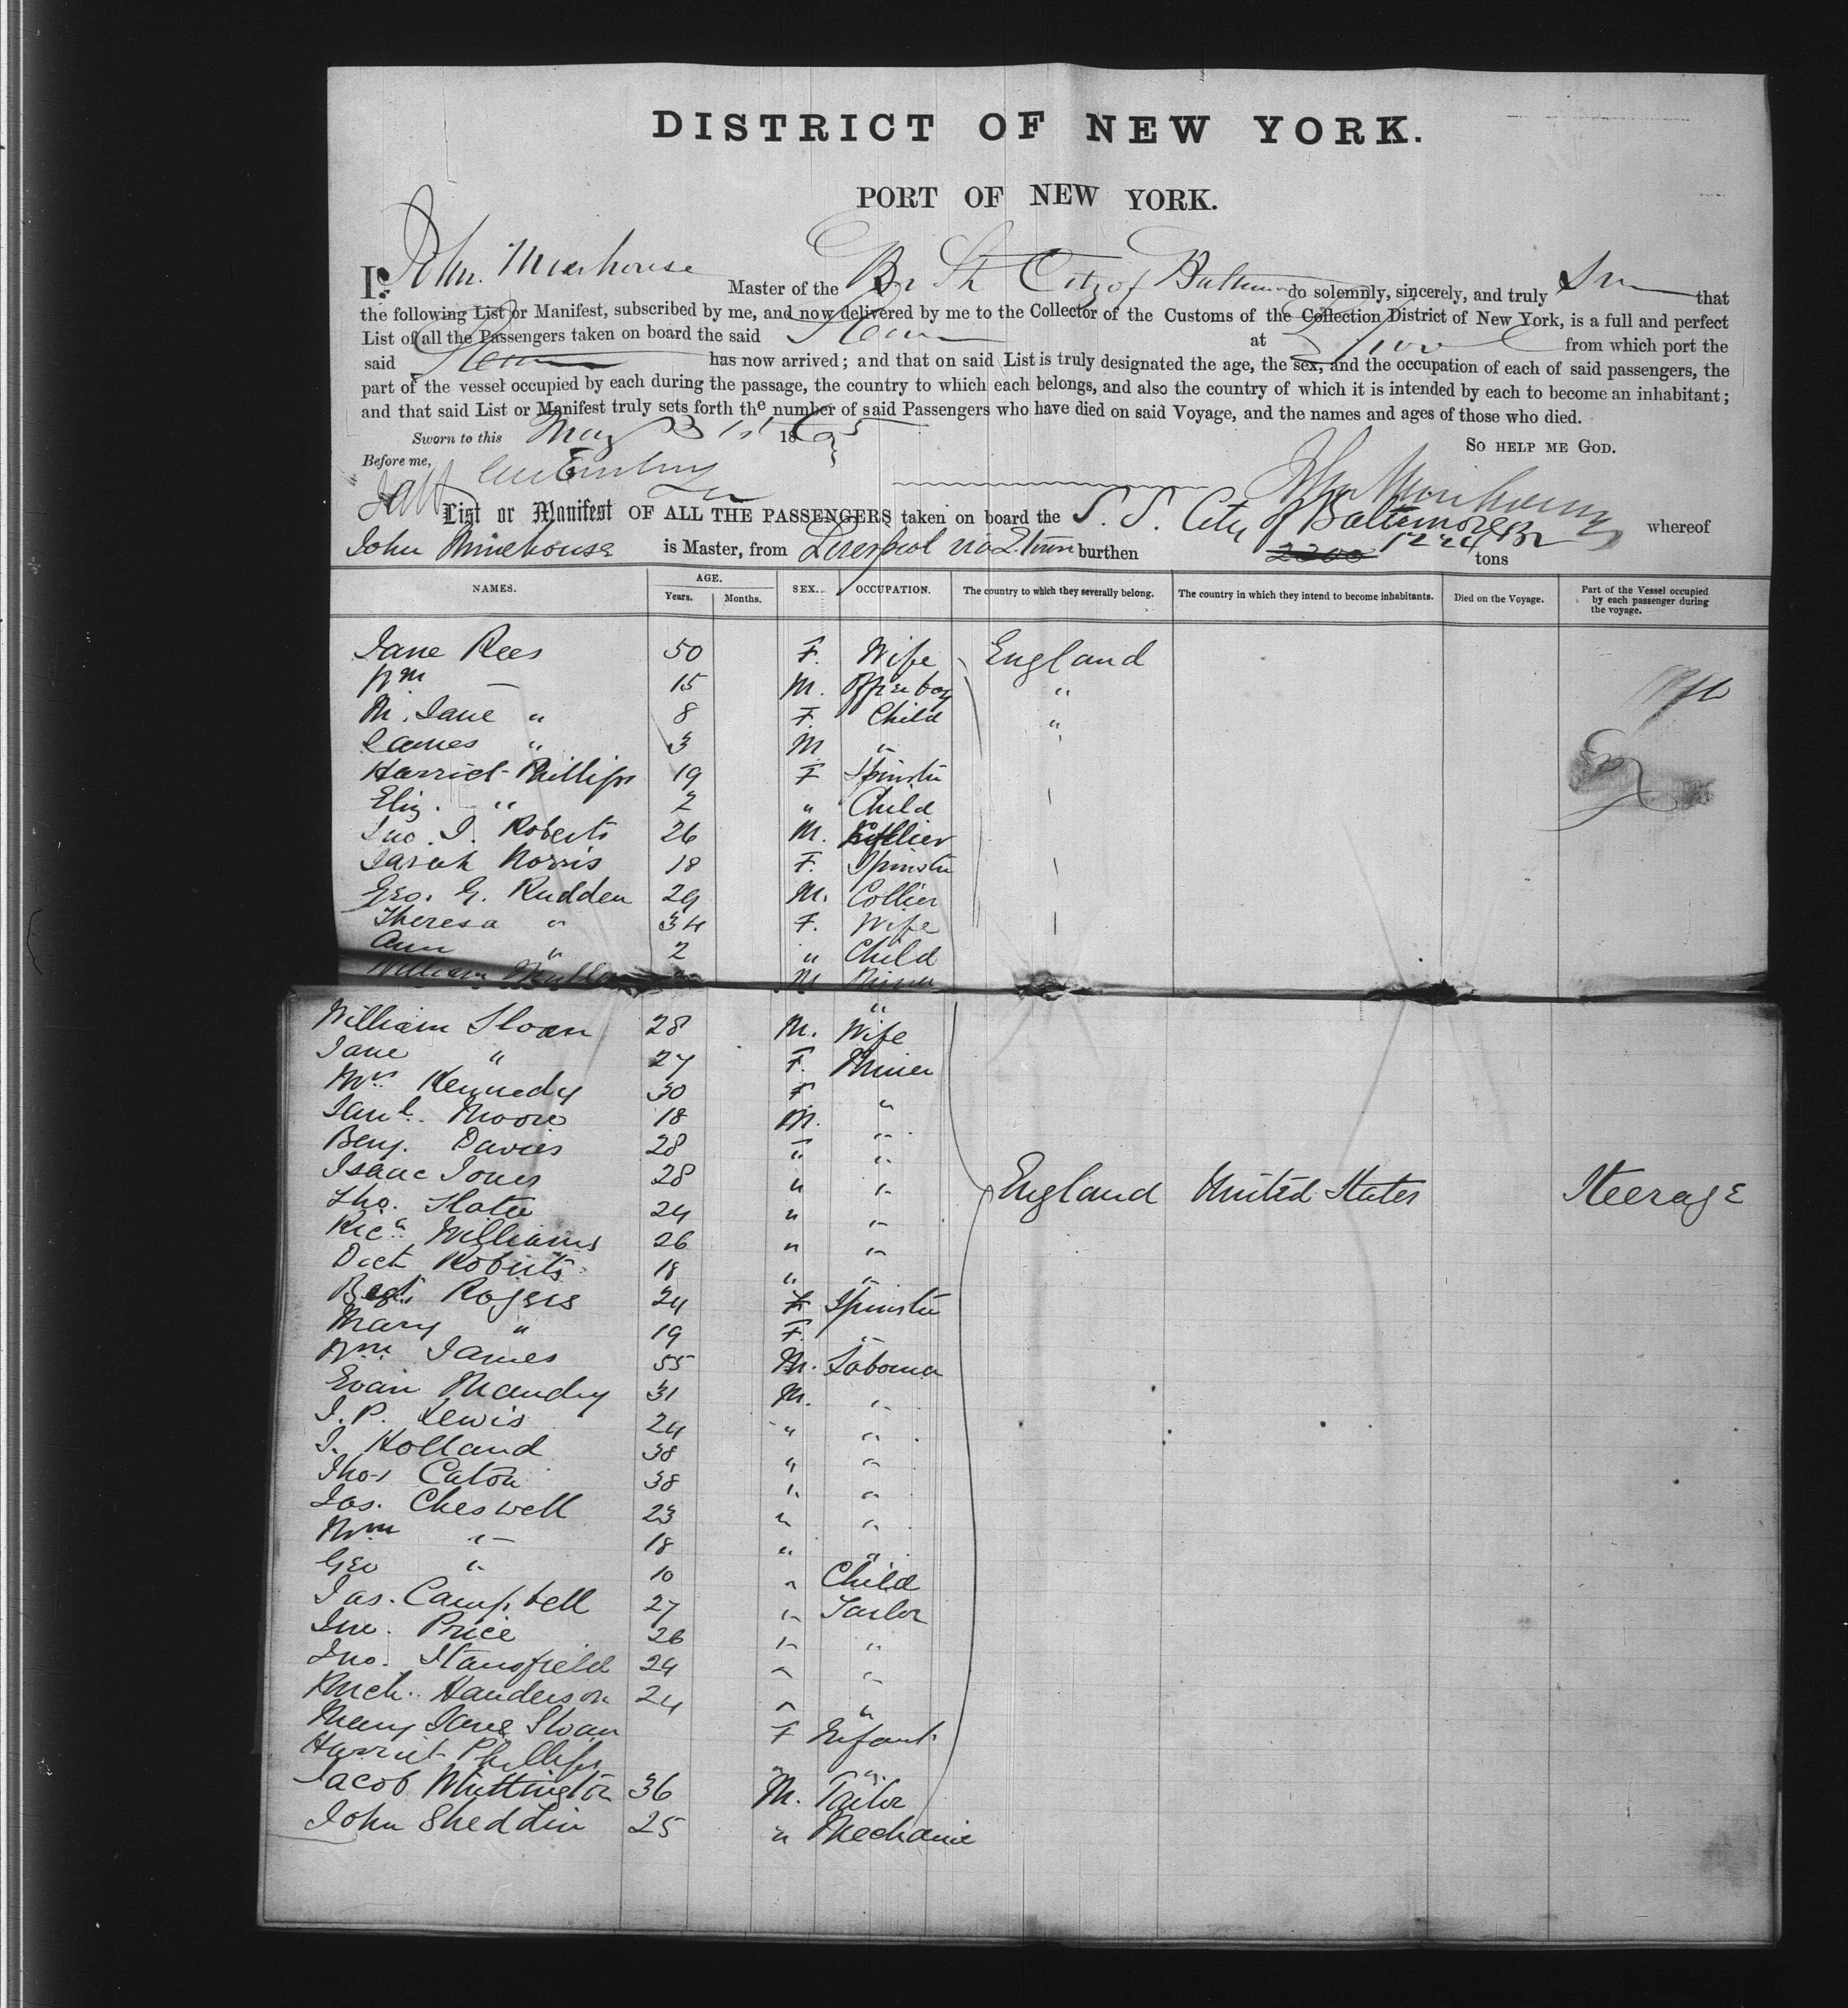 DISTRICT OF NEW YORK.
PORT OF NEW YORK.
I, John Mirehouse Master of the Br St City of Baltimore do solemnly, sincerely, and truly that
the following List or Manifest, subscribed by me, and now delivered by me to the Collector of the Customs of the Collection District of New York, is a full and perfect
List of all the Passengers taken on board the said at from which port the
said has now arrived; and that on said List is truly designated the age, the sex, and the occupation of each of said passengers, the
part of the vessel occupied by each during the passage, the country to which each belongs, and also the country of which it is intended by each to become an inhabitant;
and that said List or Manifest truly sets forth the number of said Passengers who have died on said Voyage, and the names and ages of those who died.
Sworn to this May 31st 1865
SO HELP ME GOD.
Before me,
List or Manifest OF ALL THE PASSENGERS taken on board the S. S. City of Baltimore whereof
John Mirehouse is Master, from Liverpool via Q.town burthen tons
NAMES. AGE. Years. Months. SEX. OCCUPATION. The country to which they severally belong. The country in which they intend to become inhabitants. Died on the Voyage. Part of the Vessel occupied by each passenger during the voyage.
Jane Rees 50 F. Wife England
Wm — 15 M. Office boy "
M. Jane " 8 F. Child "
James " 3 M "
Harriet Phillips 19 F Spinster
Eliz. " 2 " Child
Jno. J. Roberts 26 M. Collier
Sarah Norris 18 F. Spinster
Geo. G. Rudden 29 M. Collier
Theresa " 34 F. Wife
Ann " 2 " Child
William M Miner
William Sloan 28 M. "
Jane " 27 F. Wife
Mrs Kennedy 30 F Miner
Saml. Moore 18 M. "
Benj. Davies 28 " "
Isaac Jones 28 " " England United States Steerage
Tho. Slater 24 " "
Ricd Williams 26 " "
Dect Roberts 18 " "
Rogers 24 F Spinster
Mary " 19 F. "
Wm James 55 M. Labourer
Evan Maudry 31 M. "
J. P. Lewis 24 " "
J. Holland 38 " "
Thos Caton 38 " "
Jas. Cheswell 23 " "
Wm " 18 " "
Geo " 10 " Child
Jas. Campbell 27 " Tailor
Jno. Price 26 " "
Jno. Stansfield 24 " "
Mich. Handerson 24 " "
Mary Jane Sloan F Infant
Harriet Phillips " "
Jacob Whittington 36 M. Tailor
John Sheddin 25 " Mechanic